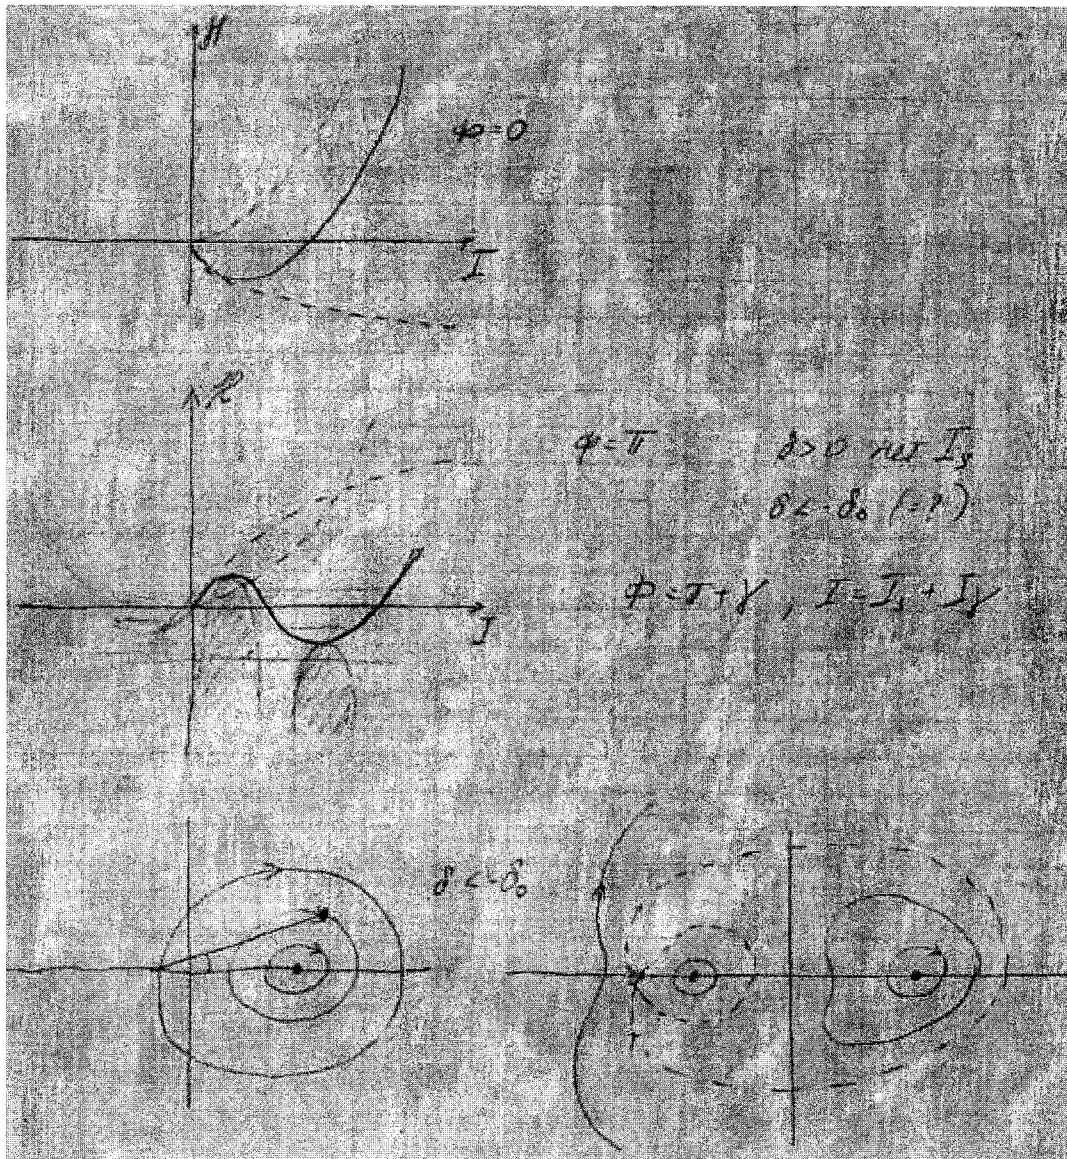 H
Φ=0
I
H
φ=π δ>0 нет I_s
δ<-δ₀ (=?)
Φ=π+γ, I=I_s+I_γ
I
δ<-δ₀